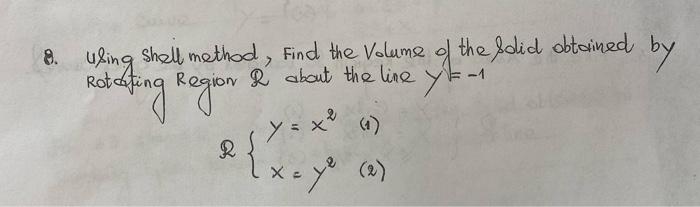 8. Using Shell method, Find the Volume of the Solid obtained by
Rotating Region R about the line y = -1
y = x² (1)
R {
x = y² (2)